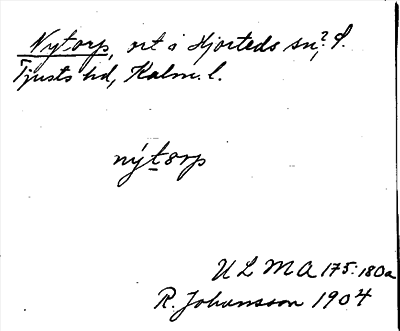 Nytorp, ort i Hjorteds sn,? S.
Tjusts hd, Kalm. l.
nýtorp
ULMA 175:180a
R. Johansson 1904